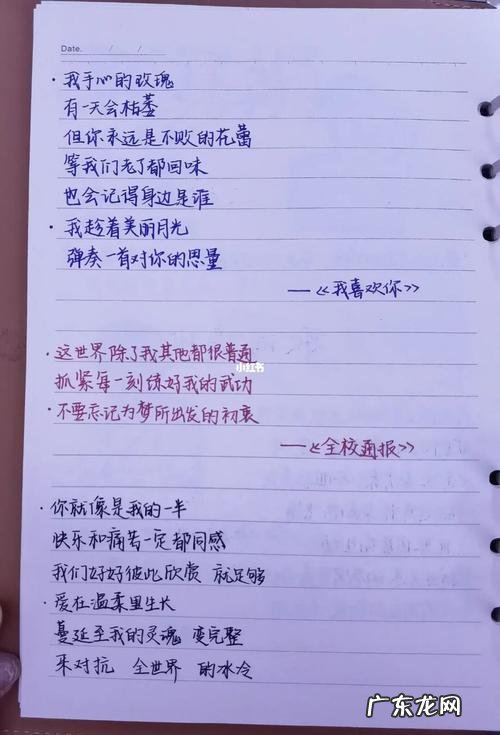 Date. / /
·我手心的玫瑰
有一天会枯萎
但你永远是不败的花蕾
等我们老了都回味
也会记得身边是谁
·我趁着美丽月光
弹奏一首对你的思量
——《我喜欢你》
·这世界除了我其他都很普通
抓紧每一刻练好我的武功
·不要忘记为梦所出发的初衷
——《全校通报》
小红书
·你就像是我的一半
快乐和痛苦一定都同感
我们好好彼此欣赏 就足够
·爱在温柔里生长
蔓延至我的灵魂 变完整
来对抗 全世界 的冰冷
广东龙网